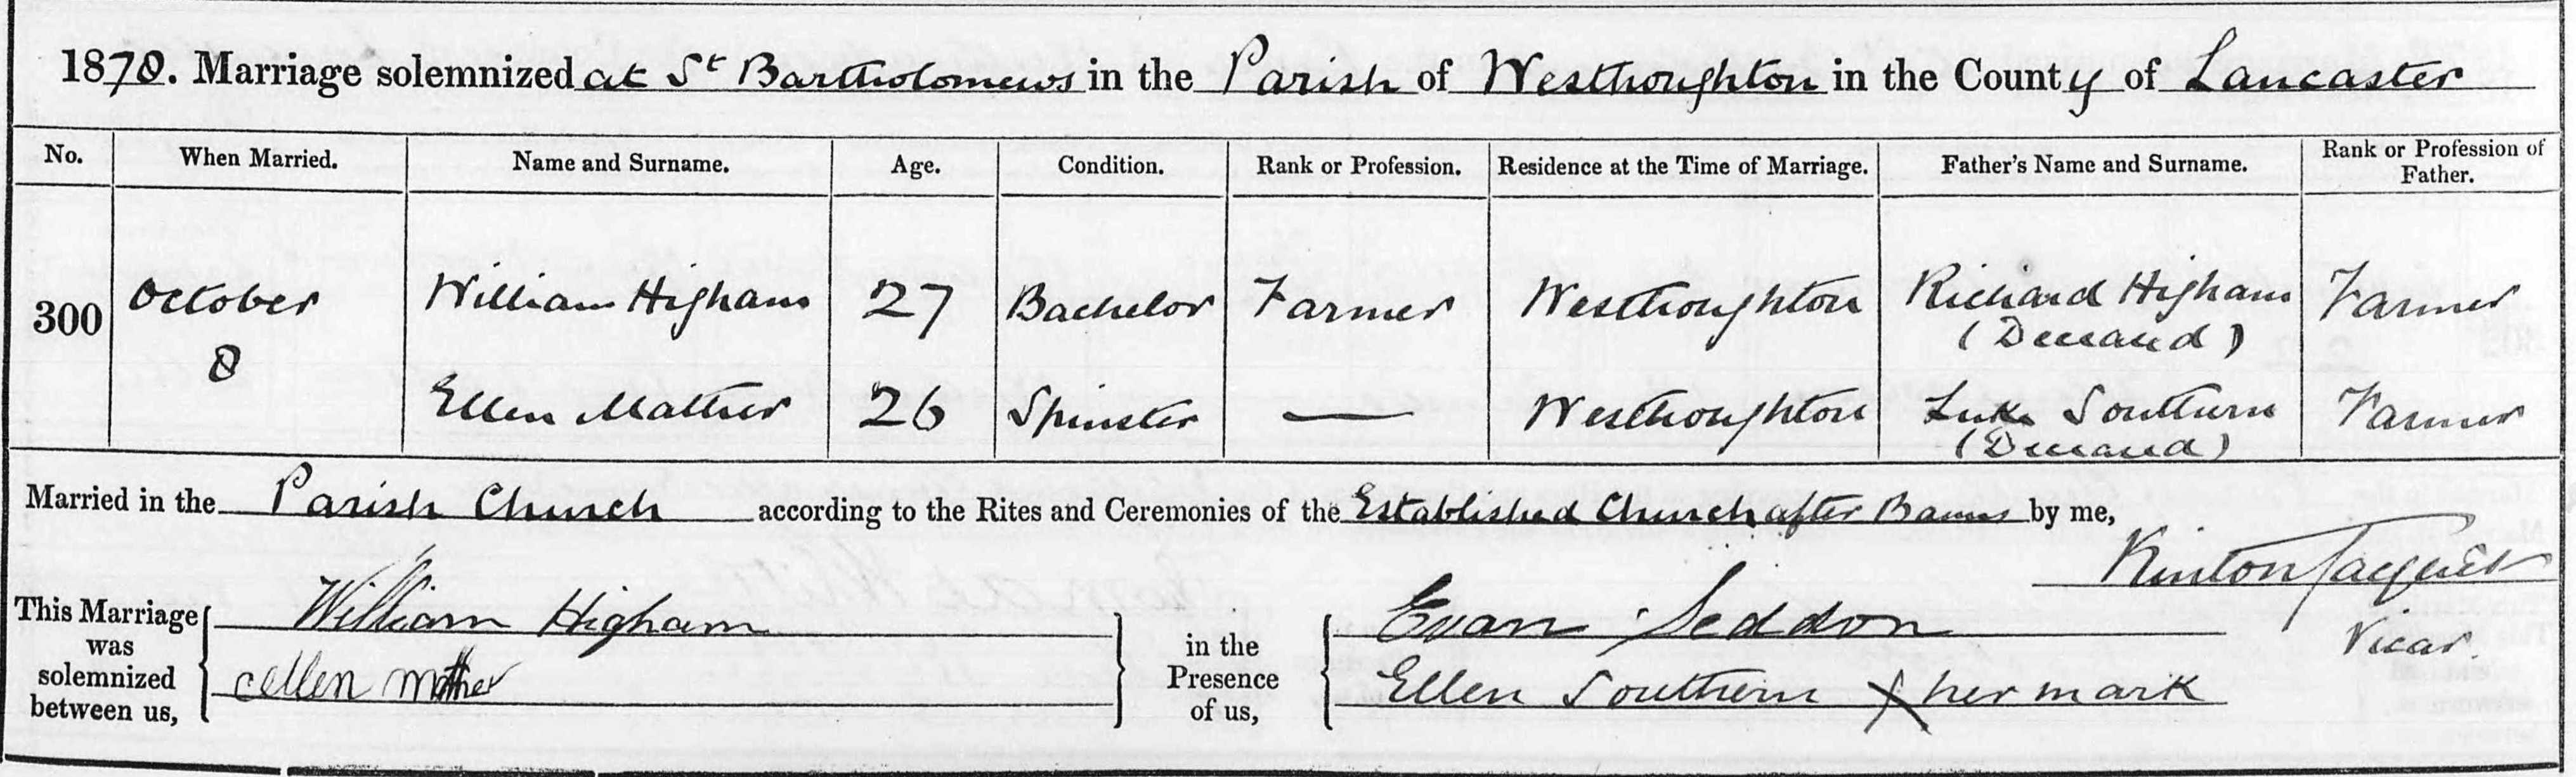 1878. Marriage solemnized at St Bartholomews in the Parish of Westhoughton in the County of Lancaster
No. When Married. Name and Surname. Age. Condition. Rank or Profession. Residence at the Time of Marriage. Father's Name and Surname. Rank or Profession of Father.
300 October 8 William Higham 27 Bachelor Farmer Westhoughton Richard Higham (Deceased) Farmer
Ellen Mather 26 Spinster — Westhoughton Luke Southern (Deceased) Farmer
Married in the Parish Church according to the Rites and Ceremonies of the Established Church after Banns by me,
Kinton Jacques
Vicar.
This Marriage was solemnized between us,
William Higham
Ellen Mather
in the Presence of us,
Evan Seddon
Ellen Southern X her mark